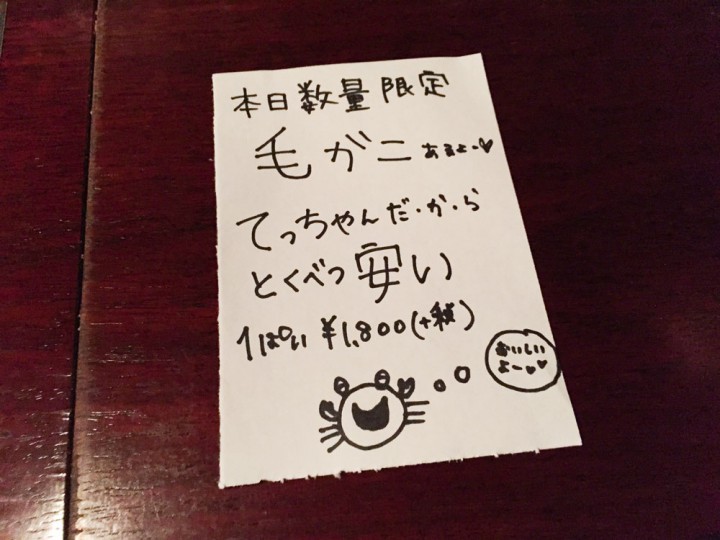 本日数量限定
毛ガニあるよー♥
てっちゃんだ・か・ら
とくべつ安い
1ぱい ¥1,800(+税)
おいしい
よー♥♥